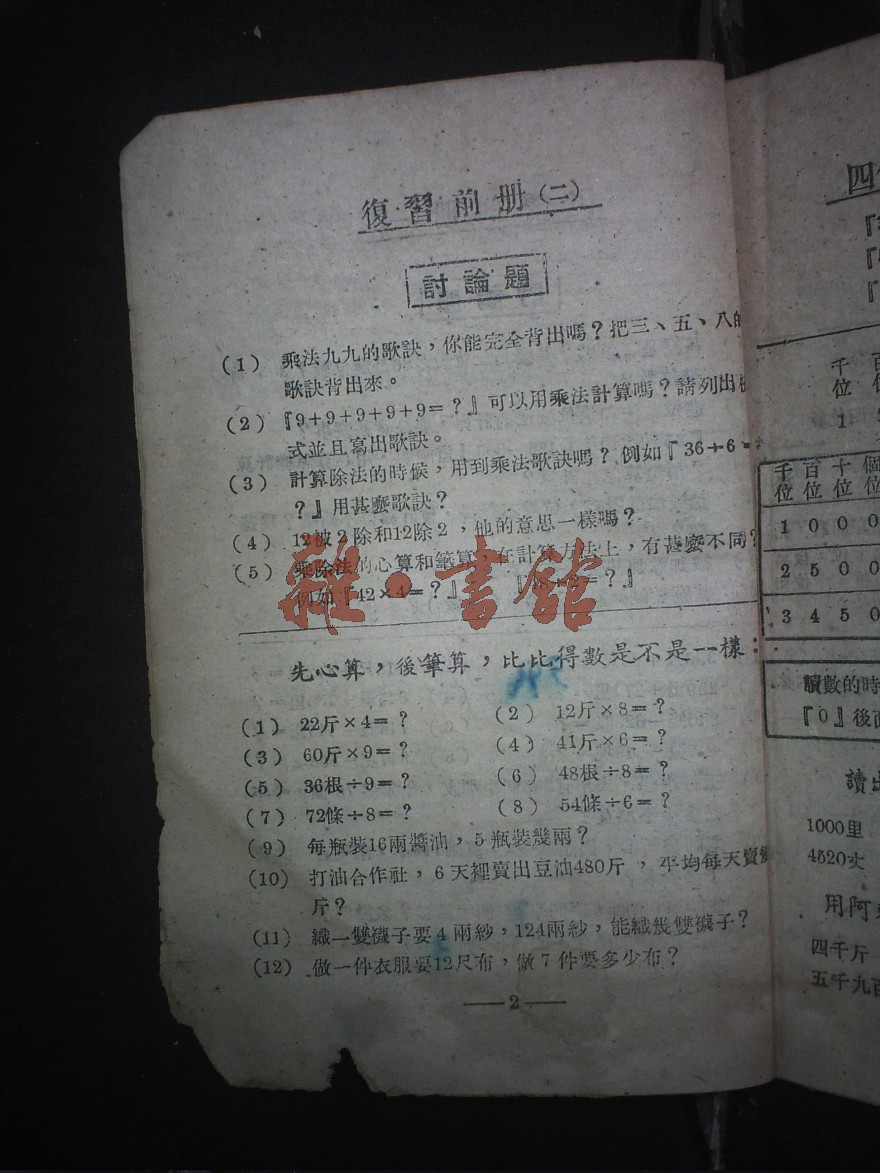 復習前册(二)
討論題
(1) 乘法九九的歌訣，你能完全背出嗎？把三、五、八的
歌訣背出來。
(2) 『9+9+9+9+9=？』可以用乘法計算嗎？請列出
式並且寫出歌訣。
(3) 計算除法的時候，用到乘法歌訣嗎？例如『36÷6=
？』用甚麼歌訣？
(4) 12被2除和12除2，他的意思一樣嗎？
(5) 乘除法的心算和筆算，在計算方法上，有甚麼不同？
例如『42×4=？』 『 ÷2=？』
雜·書館
先心算，後筆算，比比得數是不是一樣：
(1) 22斤×4=？ (2) 12斤×8=？
(3) 60斤×9=？ (4) 41斤×6=？
(5) 36根÷9=？ (6) 48根÷8=？
(7) 72條÷8=？ (8) 54條÷6=？
(9) 每瓶裝16兩醬油，5瓶裝幾兩？
(10) 打油合作社，6天裡賣出豆油480斤，平均每天賣幾
斤？
(11) 織一雙襪子要4兩紗，124兩紗，能織幾雙襪子？
(12) 做一件衣服要12尺布，做7件要多少布？
—2—
四
千
位
1
千 百 十 個
位 位 位 位
1 0 0 0
2 5 0 0
3 4 5 0
讀數的時
『0』後面
讀出
1000里
4520丈
用阿
四千斤
五千九百